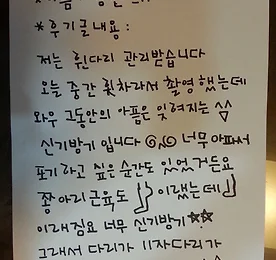 *후기글내용:
저는 휜다리 관리받습니다
오늘 중간 휯차라서 촬영했는데
와우 그동안의 아픔은 잊혀지는 ^^
신기방기 입니다 너무아파서
포기하고 싶은순간도 있었거든요
종아리근육도 이랬는데
이래적요 너무 신기방기 ☆☆
그래서 다리가 11자다리가